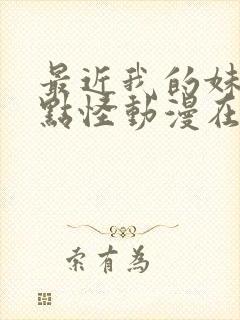 最近我的妹
點怪動漫在
索有為